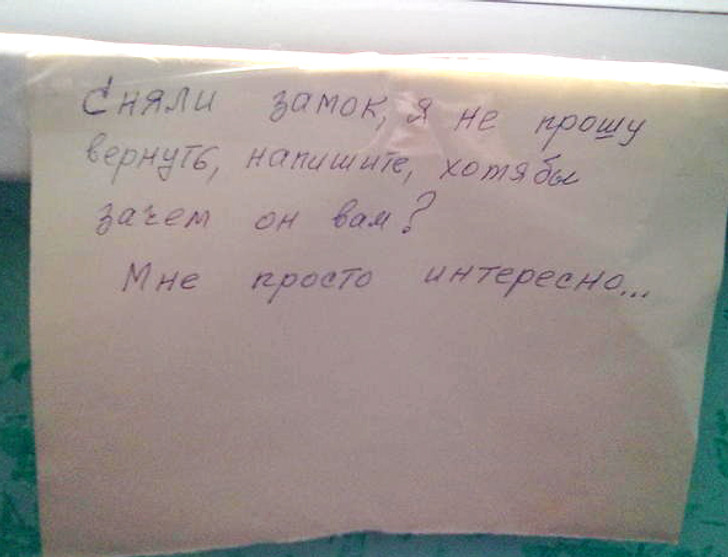 Сняли замок, я не прошу
вернуть, напишите, хотябы
зачем он вам?
Мне просто интересно...